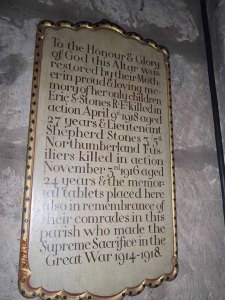 To the Honour & Glory
of God this Altar was
restored by their Moth-
er in proud & loving me-
mory of her only children
Eric S. Stones R.E. killed in
action April 9th 1918 aged
27 years & Lieutenant
Shepherd Stones 5/5th
Northumberland Fus-
iliers killed in action
November 5rd 1916 aged
24 years & the memor-
ial tablets placed here
also in remembrance of
their comrades in this
parish who made the
Supreme Sacrifice in the
Great War 1914-1918.